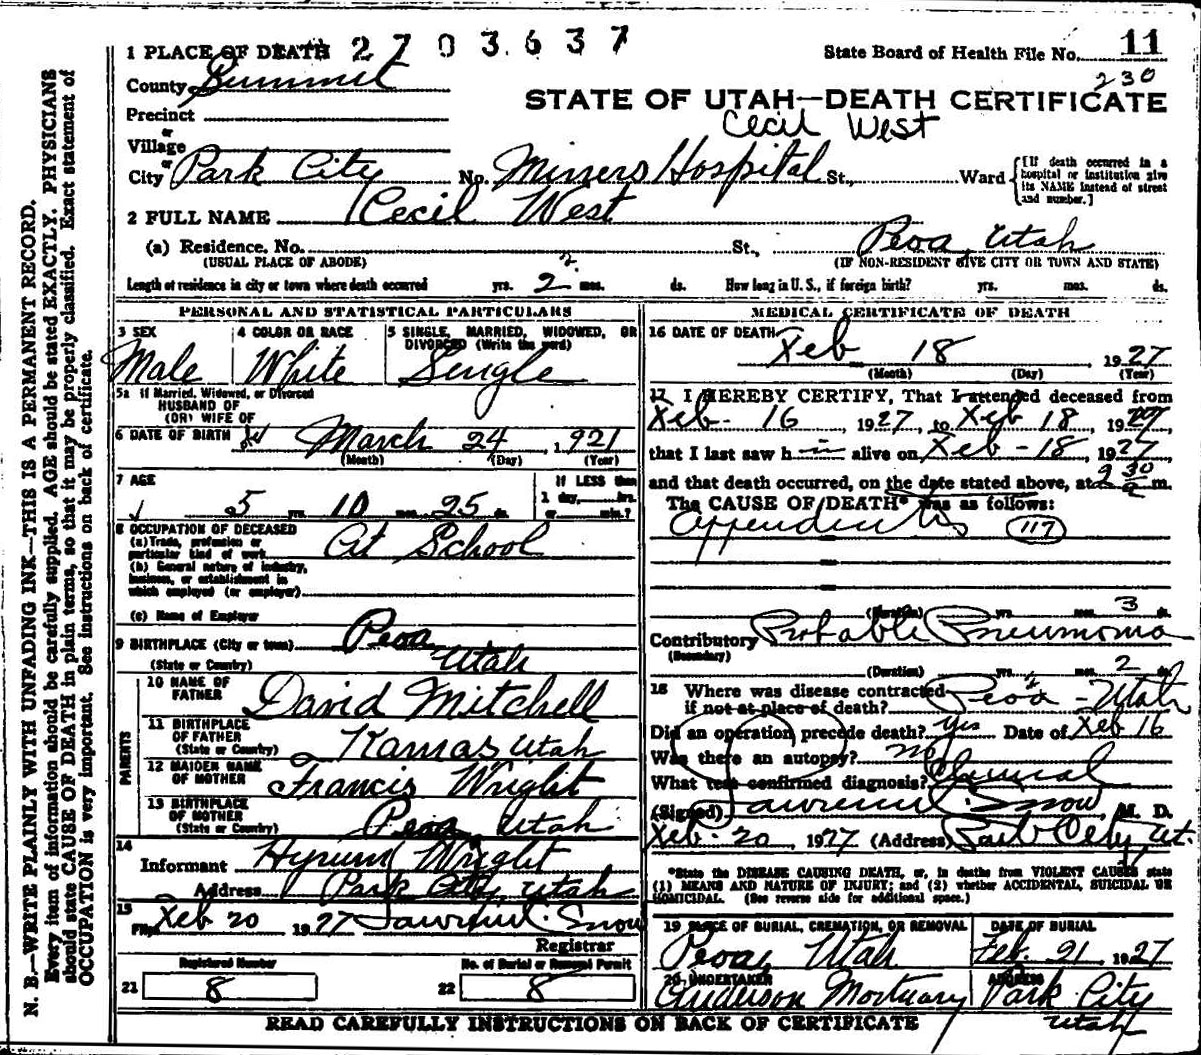 1 PLACE OF DEATH 2703637
State Board of Health File No. 11
County Summit 230
STATE OF UTAH—DEATH CERTIFICATE
Precinct
Cecil West
or
Village
or
City Park City No. Miners Hospital St., Ward [If death occurred in a hospital or institution give its NAME instead of street and number.]
2 FULL NAME Cecil West
(a) Residence, No. St., Peoa, Utah
(USUAL PLACE OF ABODE) (IF NON-RESIDENT GIVE CITY OR TOWN AND STATE)
Length of residence in city or town where death occurred yrs. 2 mos. ds. How long in U. S., if foreign birth? yrs. mos. ds.
PERSONAL AND STATISTICAL PARTICULARS
3 SEX 4 COLOR OR RACE 5 SINGLE, MARRIED, WIDOWED, OR
DIVORCED (Write the word)
Male White Single
5a If Married, Widowed, or Divorced
HUSBAND OF
(OR) WIFE OF
6 DATE OF BIRTH March 24, 1921
(Month) (Day) (Year)
7 AGE If LESS than
5 yrs. 10 mos. 25 ds. 1 day, hrs.
or min.?
8 OCCUPATION OF DECEASED
(a) Trade, profession or
particular kind of work At School
(b) General nature of industry,
business, or establishment in
which employed (or employer)
(c) Name of Employer
9 BIRTHPLACE (City or town) Peoa
(State or Country) Utah
PARENTS
10 NAME OF
FATHER David Mitchell
11 BIRTHPLACE
OF FATHER
(State or Country) Kamas Utah
12 MAIDEN NAME
OF MOTHER Francis Wright
13 BIRTHPLACE
OF MOTHER
(State or Country) Peoa Utah
14
Informant Hyrum Wright
Address Park City, Utah
15
Filed Feb 20 1927 Lawrence Snow
Registrar
Registered Number No. of Burial or Removal Permit
21 8 22 8
MEDICAL CERTIFICATE OF DEATH
16 DATE OF DEATH Feb 18 1927
(Month) (Day) (Year)
17 I HEREBY CERTIFY, That I attended deceased from
Feb- 16, 1927, to Feb 18, 1927
that I last saw h im alive on Feb - 18, 1927
and that death occurred, on the date stated above, at 2 30 a m.
The CAUSE OF DEATH* was as follows:
Appendicitis 117
(Duration) yrs. mos. 3 ds.
Contributory Probable Pneumonia
(Secondary)
(Duration) yrs. mos. 2 ds.
18 Where was disease contracted
if not at place of death? Peoa - Utah
Did an operation precede death? yes Date of Feb 16
Was there an autopsy? no
What test confirmed diagnosis? Clinical
(Signed) Lawrence Snow M. D.
Feb- 20, 1927 (Address) Park City, Ut.
*State the DISEASE CAUSING DEATH, or, in deaths from VIOLENT CAUSES state
(1) MEANS AND NATURE OF INJURY; and (2) whether ACCIDENTAL, SUICIDAL OR
HOMICIDAL. (See reverse side for additional space.)
19 PLACE OF BURIAL, CREMATION, OR REMOVAL DATE OF BURIAL
Peoa, Utah Feb. 21, 1927
20 UNDERTAKER ADDRESS
Anderson Mortuary Park City
Utah
READ CAREFULLY INSTRUCTIONS ON BACK OF CERTIFICATE
N. B.—WRITE PLAINLY WITH UNFADING INK—THIS IS A PERMANENT RECORD.
Every item of information should be carefully supplied. AGE should be stated EXACTLY. PHYSICIANS
should state CAUSE OF DEATH in plain terms, so that it may be properly classified. Exact statement of
OCCUPATION is very important. See instructions on back of certificate.